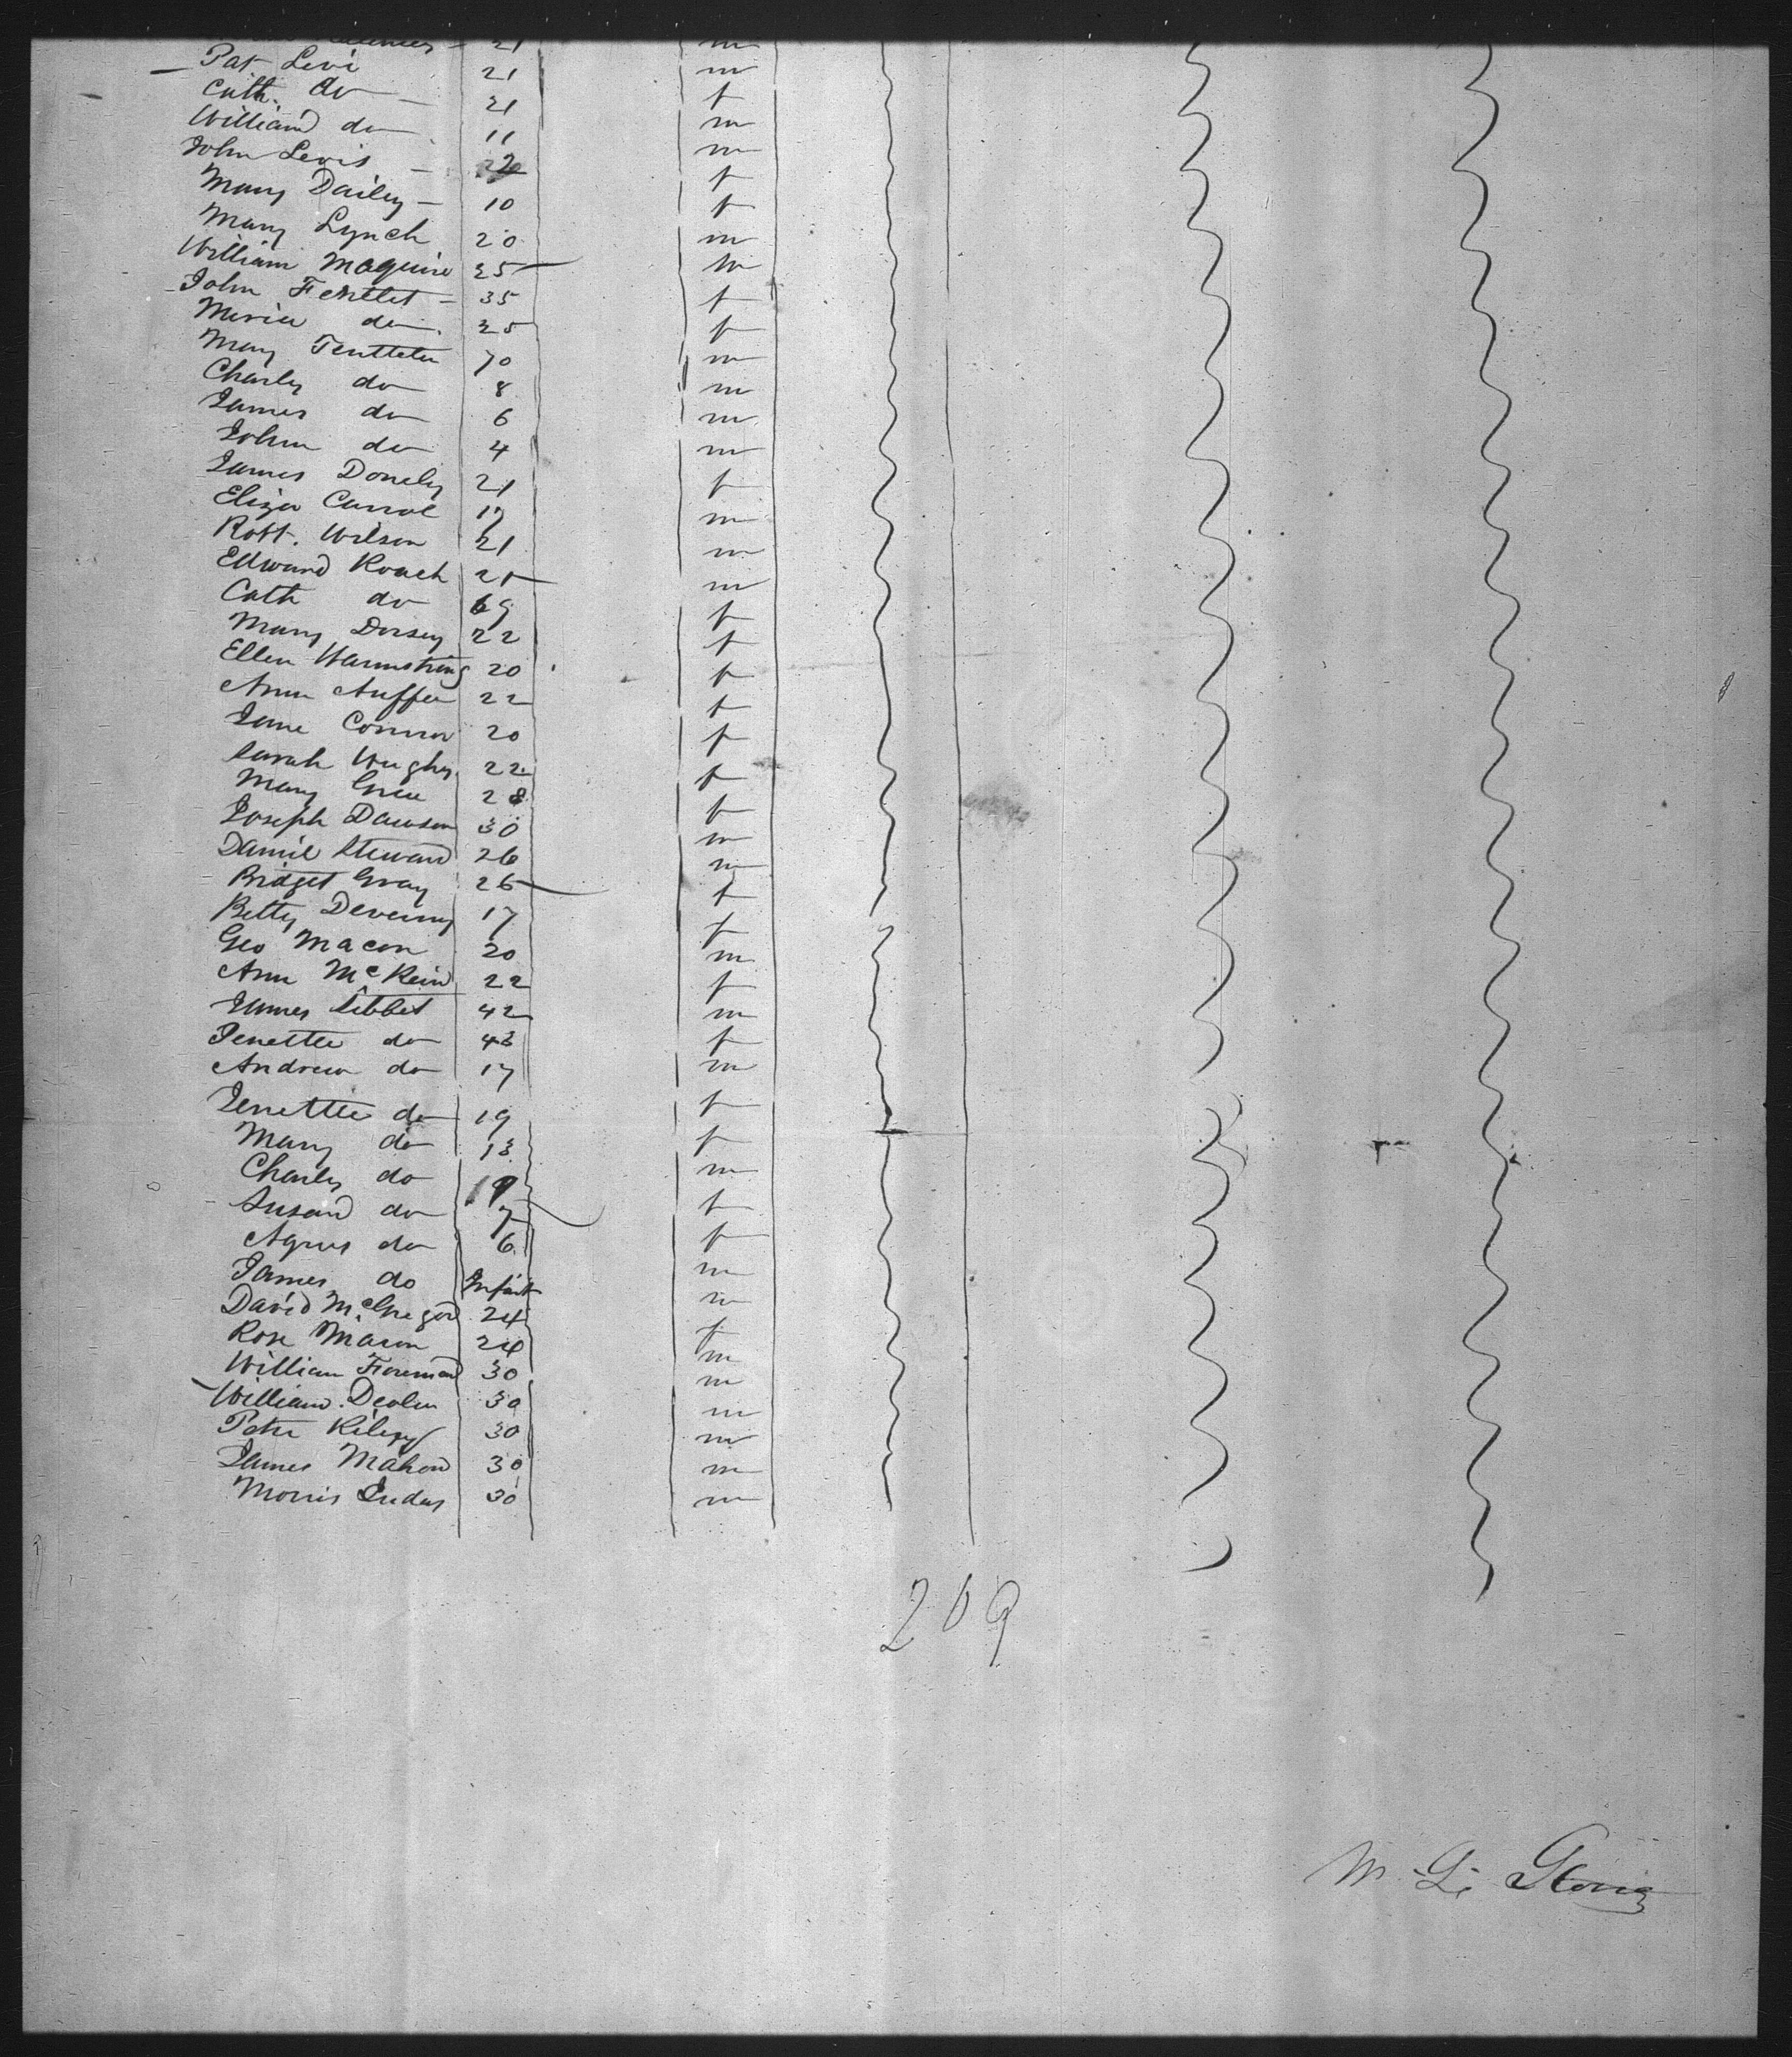 21 m
Pat Levi 21 m
Cath. do 21 f
William do 11 m
John Levis 22 m
Mary Dailey 10 f
Mary Lynch 20 f
William Maguire 25 m
John Fentlet 35 m
Meriu do 25 f
Mary Tentletu 70 f
Charley do 8 m
James do 6 m
John do 4 m
James Donely 21 m
Eliza Carrol 17 f
Robt. Wilson 21 m
Edward Roach 25 m
Cath do 69 m
Mary Dorsey 22 f
Ellen Warmstring 20 f
Ann 22 f
Jane Connor 20 f
Sarah Hughes 22 f
Mary 28 f
Joseph Dawson 30 f
Daniel Steward 26 m
Bridget Gray 25 m
Betty Deverny 17 f
Geo Macon 20 f m
Ann McKein 22 f
James Sibbet 42 m
Jenettee do 43 f
Andrew do 17 m
Jenettee do 19 f
Mary do 13 f
Charley do 19 m
Susan do 7 f
Agnes do 6 f
James do Infant m
David McGregor 24 m
Rose Mason 24 f
William Foreman 30 m
William Devlin 30 m
Peter Kiley 30 m
James Mahon 30 m
Morris Judas 30 m
209